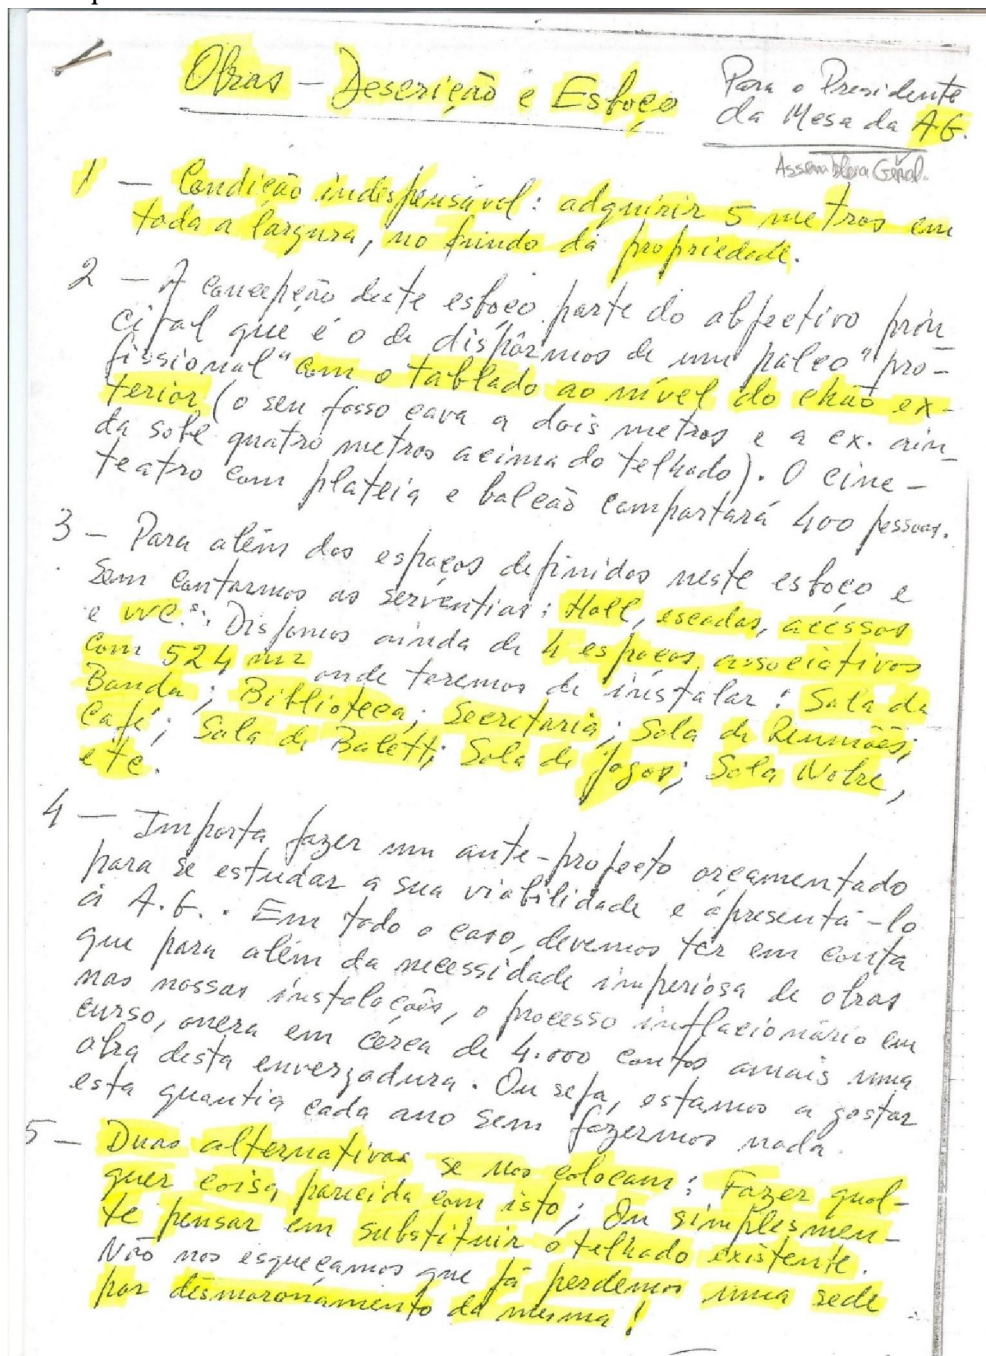 Obras - Descrição e Esboço
Para o Presidente
da Mesa da AG.
Assembleia Geral.
1 - Condição indispensável: adquirir 5 metros em
toda a largura, no fundo da propriedade.
2 - A concepção deste esboço parte do objectivo prin
cipal que é o de dispôrmos de um palco "pro-
fissional" com o tablado ao nível do chão ex-
terior (o seu fosso cava a dois metros e a ex. ain-
da sobe quatro metros acima do telhado). O cine-
teatro com plateia e balcão comportará 400 pessoas.
3 - Para além dos espaços definidos neste esboço e
sem contarmos as serventias: Hall, escadas, acéssos
e WC.ˢ: Dispomos ainda de 4 espaços associativos
com 524 m2 onde teremos de instalar: Sala da
Banda; Biblioteca; Secretaria; Sala de Reuniões;
Café; Sala de Balett; Sala de Jogos; Sala Nobre,
etc.
4 - Importa fazer um ante-projecto orçamentado
para se estudar a sua viabilidade e apresentá-lo
à A.G.. Em todo o caso, devemos ter em conta
que para além da necessidade imperiosa de obras
nas nossas instalações, o processo inflacionário em
curso, onera em cérca de 4.000 contos anuais uma
obra desta envergadura. Ou seja, estamos a gastar
esta quantia cada ano sem fazermos nada.
5 - Duas alternativas se nos colocam: Fazer qual-
quer coisa parecida com isto; Ou simplesmen-
te pensar em substituir o telhado existente.
Não nos esqueçamos que já perdemos uma sede
por desmoronamento da mesma!